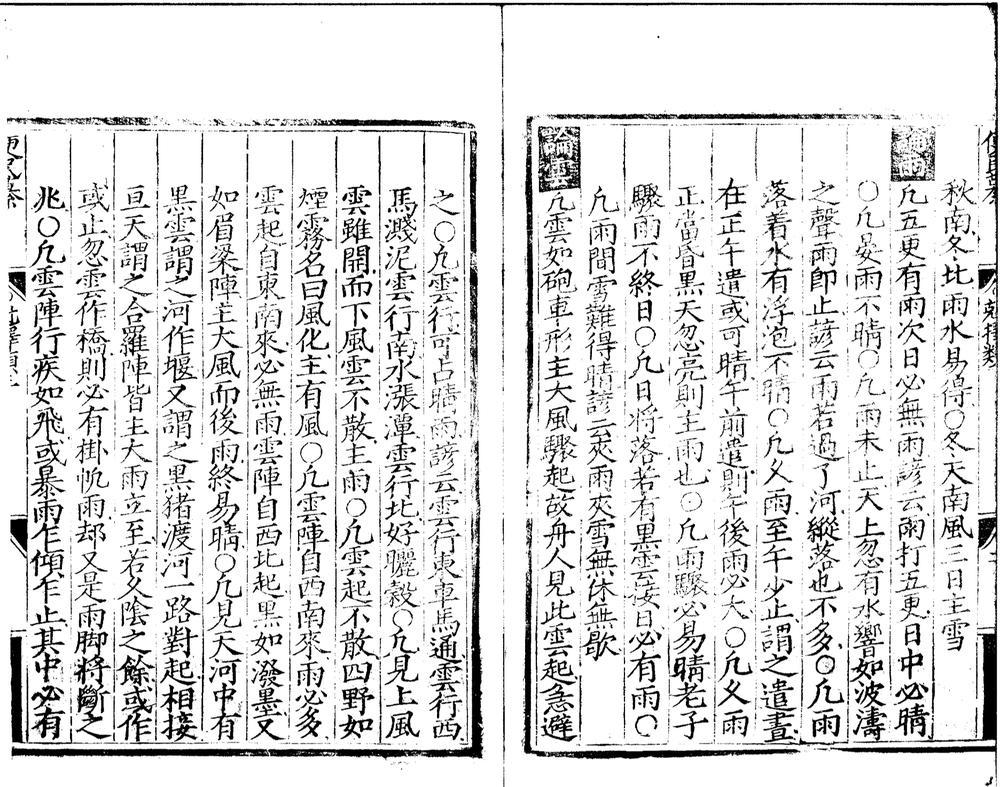 秋南冬北雨水易得〇冬天南風三日主雪
論雨
凡五更有雨次日必無雨諺云雨打五更日中必晴
〇凡晏雨不晴〇凡雨未止天上忽有水響如波濤
之聲雨卽止諺云雨若過了河縱落也不多〇凡雨
落着水有浮泡不晴〇凡久雨至午少止謂之遣晝
在正午遣或可晴午前遣則午後雨必大〇凡久雨
正當昏黑天忽亮則主雨也〇凡雨驟必易晴老子
驟雨不終日〇凡日将落若有黒雲接日必有雨〇
凡雨間雪難得晴諺云夾雨夾雪無休無歇
論雲
凡雲如砲車形主大風驟起故舟人見此雲起急避
之〇凡雲行可占晴雨諺云雲行東車馬通雲行西
馬濺泥雲行南水漲潭雲行北好曬穀〇凡見上風
雲雖開而下風雲不散主雨〇凡雲起不散四野如
煙霧名曰風化主有風〇凡雲陣自西南來雨必多
雲起自東南來必無雨雲陣自西北起黑如潑墨又
如眉梁陣主大風而後雨終易晴〇凡見天河中有
黑雲謂之河作堰又謂之黑猪渡河一路對起相接
亘天謂之合羅陣皆主大雨立至若久陰之餘或作
或止忽雲作橋則必有掛帆雨却又是雨脚將斷之
兆〇凡雲陣行疾如飛或暴雨乍傾乍止其中必有